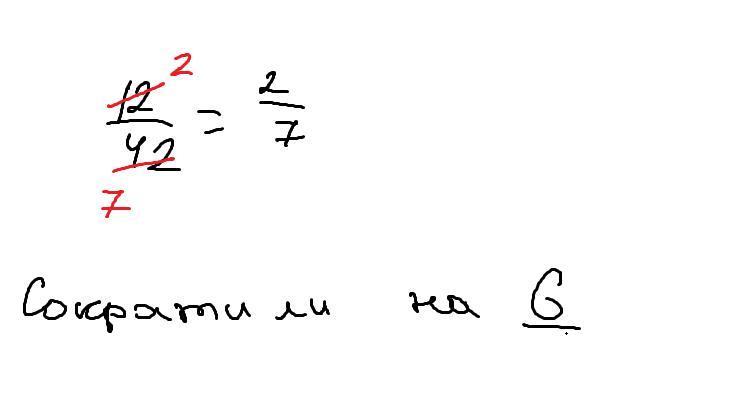 12 2
— = 2/7
42
7
Сократили на 6